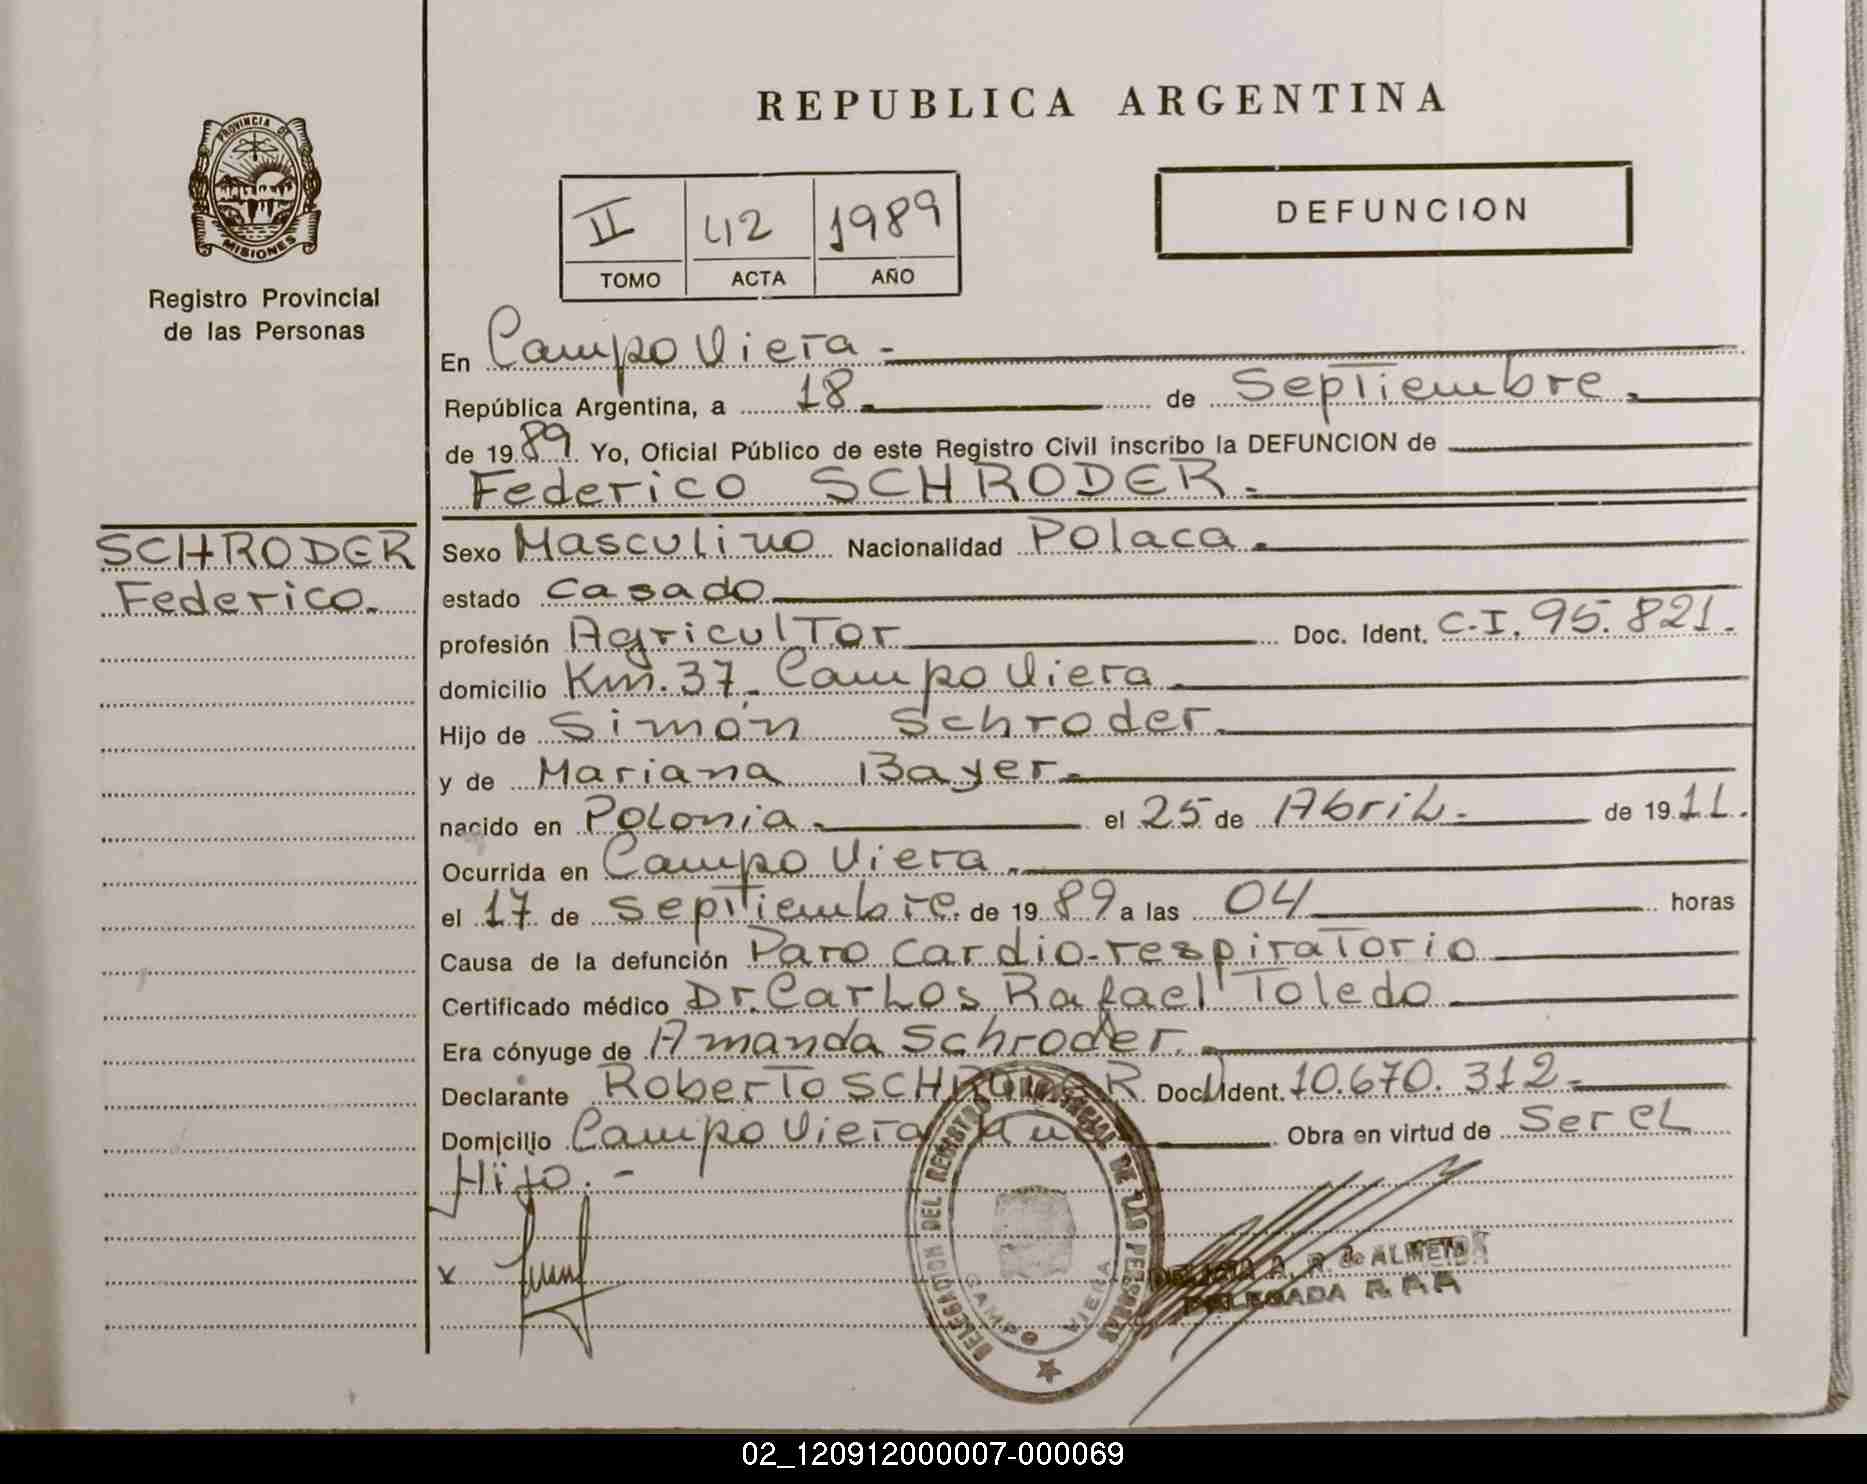 PROVINCIA DE
MISIONES
Registro Provincial
de las Personas
REPUBLICA ARGENTINA
II 42 1989
TOMO ACTA AÑO
DEFUNCION
En Campo Viera.
República Argentina, a 18 de Septiembre.
de 1989. Yo, Oficial Público de este Registro Civil inscribo la DEFUNCION de
Federico SCHRODER.
SCHRODER
Federico.
Sexo Masculino Nacionalidad Polaca.
estado casado
profesión Agricultor Doc. Ident. C.I. 95.821.
domicilio Km. 37. Campo Viera.
Hijo de Simón Schroder.
y de Mariana Bayer.
nacido en Polonia. el 25 de Abril. de 1911.
Ocurrida en Campo Viera.
el 17 de septiembre. de 1989 a las 04 horas
Causa de la defunción Paro cardio-respiratorio
Certificado médico Dr. Carlos Rafael Toledo
Era cónyuge de Amanda Schroder.
Declarante Roberto SCHRODER Doc. Ident. 10.670.312.
Domicilio Campo Viera Obra en virtud de Ser el
Hijo.-
x
DELEGACION DEL REGISTRO PROVINCIAL DE LAS PERSONAS
CAMPO VIERA
A. R. de ALMEIDA
DELEGADA
02_120912000007-000069